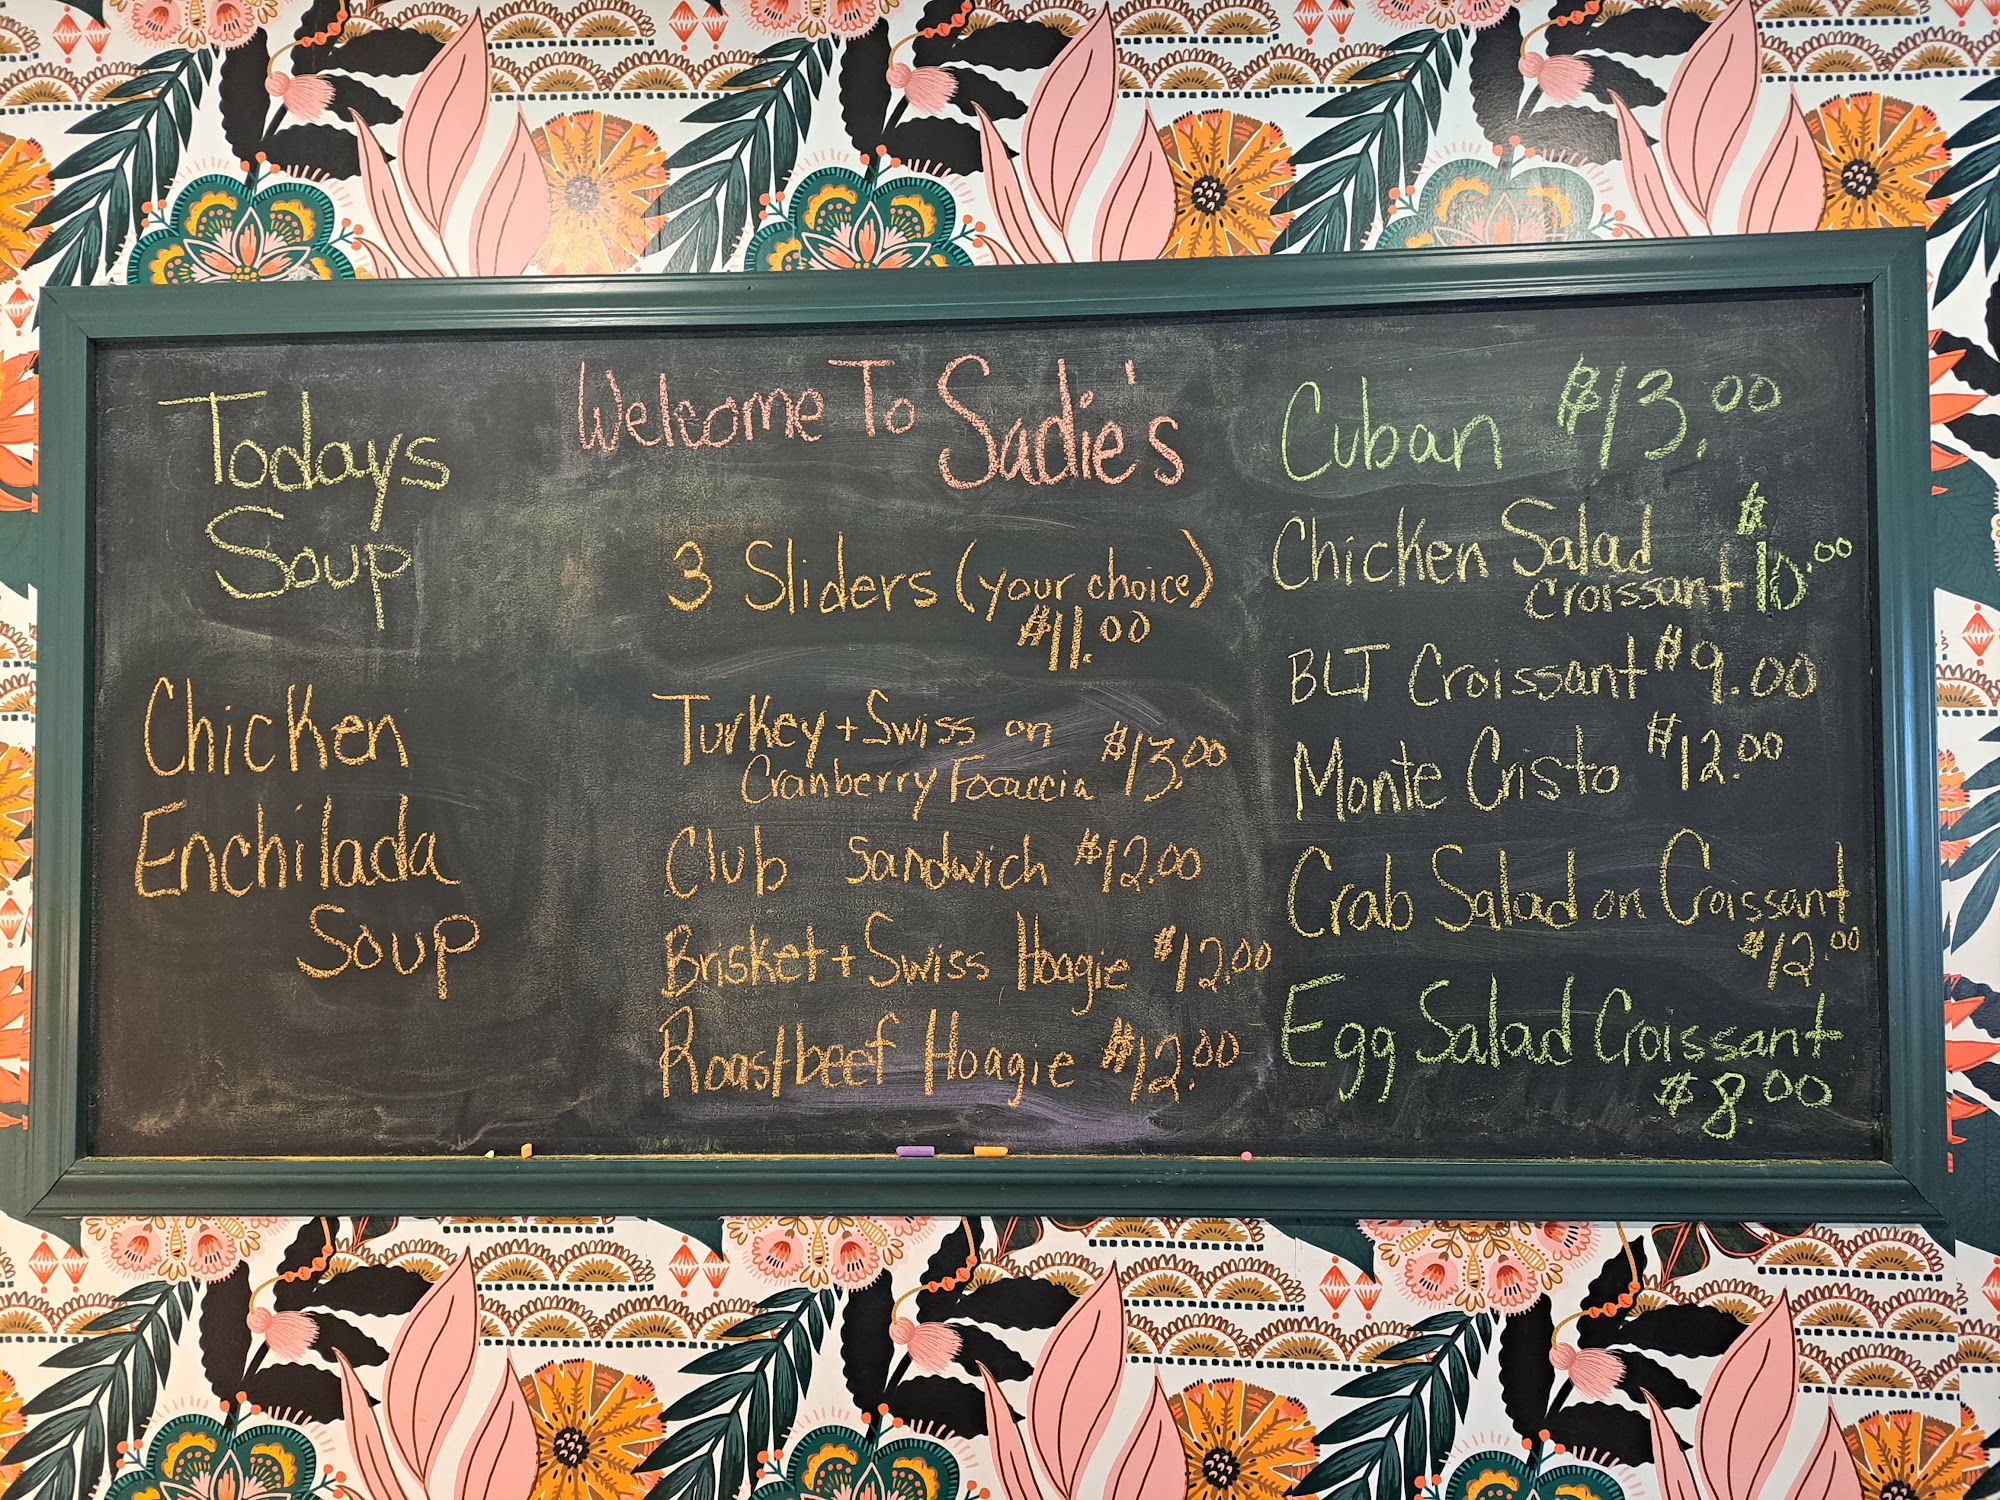 Todays
Soup
Chicken
Enchilada
Soup
Welcome To Sadie's
3 Sliders (your choice)
$11.00
Turkey + Swiss on
Cranberry Focaccia $13.00
Club Sandwich $12.00
Brisket + Swiss Hoagie $12.00
Roastbeef Hoagie $12.00
Cuban $13.00
Chicken Salad
Croissant $10.00
BLT Croissant $9.00
Monte Cristo $12.00
Crab Salad on Croissant
$12.00
Egg Salad Croissant
$8.00